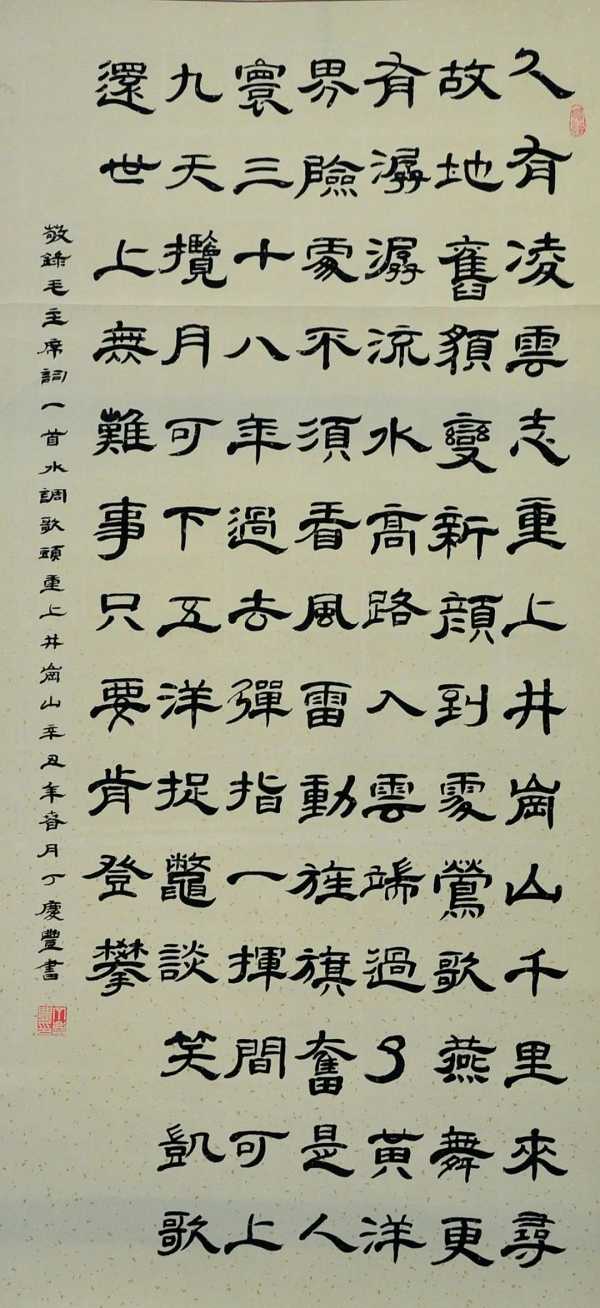 久有凌雲志重上井崗山千里來尋
故地舊貌變新顔到處鶯歌燕舞更
有潺潺流水高路入雲端過了黃洋
界險處不須看風雷動旌旗奮是人
寰三十八年過去彈指一揮間可上
九天攬月可下五洋捉鼈談笑凱歌
還世上無難事只要肯登攀
敬錄毛主席詞一首水調歌頭重上井崗山辛丑年春月丁慶豐書